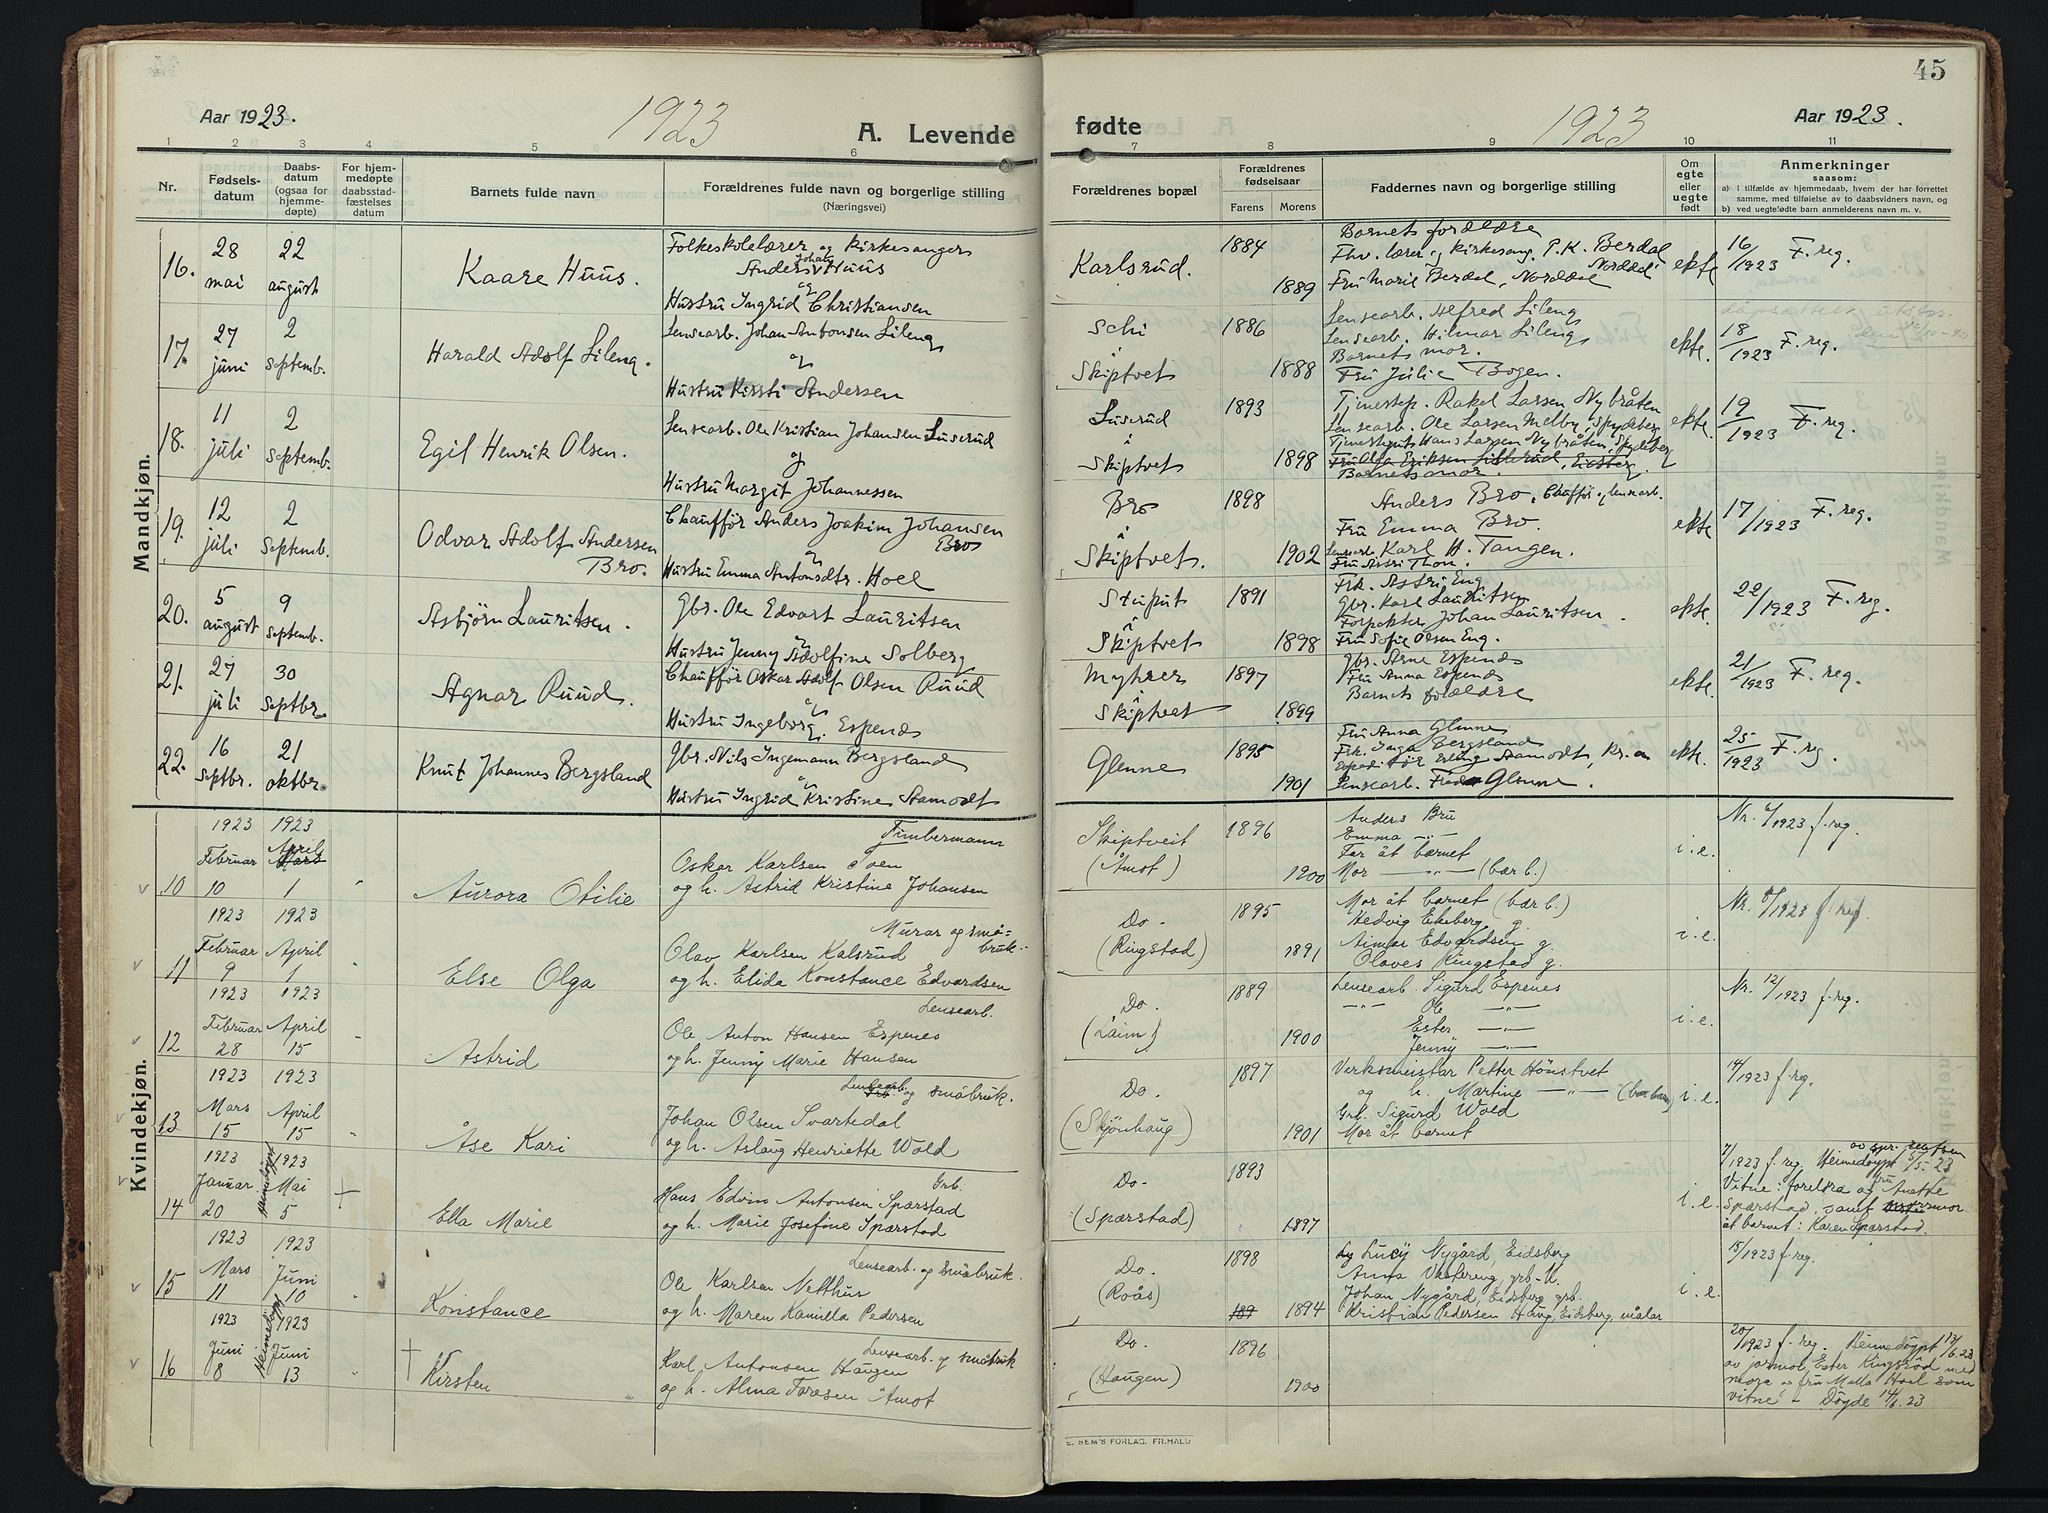 45
Aar 1923.
1923
A. Levende
fødte
1923
Aar 1923.
1 2 3 4 5 6 7 8 9 10 11
Nr.
Fødsels-
datum
Daabs-
datum
(ogsaa for
hjemme-
døpte)
For hjem-
medøpte
daabsstad-
fæstelses
datum
Barnets fulde navn
Forældrenes fulde navn og borgerlige stilling
(Næringsvei)
Forældrenes bopæl
Forældrenes
fødselsaar
Farens Morens
Faddernes navn og borgerlige stilling
Om
egte
eller
uegte
født
Anmerkninger
saasom:
a) i tilfælde av hjemmedaab, hvem der har forrettet
samme, med tilføielse av to daabsvidners navn, og
b) ved uegtefødte barn anmelderens navn m. v.
Mandkjøn.
16. 28 mai 22 august
Kaare Huus.
Folkeskolelærer og kirkesanger
Anders Johan Huus
og
Hustru Ingrid Christiansen
Karlsrud.
1884
1889
Barnets forældre
Fhv. lærer og kirkesang. P. K. Berdal
Norddal
Fru Marie Berdal, Norddal
ekte
16/1923 F. reg.
17. 27 juni 2 septemb.
Harald Adolf Lileng.
Lensearb. Johan Antonsen Lileng
og
Hustru Kirsti Andersen
Schi
i
Skiptvet
1886
1888
Lensearb. Alfred Lileng
Lensearb. Hilmar Lileng
Barnets mor.
Fru Julie Bogen.
ekte.
18/1923 F. reg.
18. 11 juli 2 septemb.
Egil Henrik Olsen.
Lensearb. Ole Kristian Johansen Luserud
og
Hustru Margit Johannessen
Luserud
i
Skiptvet
1893
1898
Tjenestep. Rakel Larsen Nybråten
Lensearb. Ole Larsen Melby, Spydeberg
Tjenestegut Hans Larsen Nybråten, Spydeberg
Fru Olga Eriksen Lillerud, Eidsberg.
Barnets mor
ekte.
19/1923 F. reg.
19. 12 juli 2 septemb.
Odvar Adolf Andersen
Bro.
Chauffør Anders Joakim Johansen
Bro
og
Hustru Emma Antonsdtr. Hoel
Bro
i
Skiptvet.
1898
1902
Anders Bro, Chauffør og lensearb.
Fru Emma Bro.
Lensearb. Karl H. Tangen.
Fru Astri Thon.
ekte
17/1923 F. reg.
20. 5 august 9 septemb.
Asbjørn Lauritsen.
Gbr. Ole Edvart Lauritsen
og
Hustru Jenny Adolfine Solberg
Stuput
i
Skiptvet
1891
1898
Frk. Astri Eng
Gbr. Karl Lauritsen
Forpakter Johan Lauritsen
Fru Sofie Olsen Eng.
ekte
22/1923 F. reg.
21. 27 juli 30 septbr.
Agnar Ruud.
Chauffør Oskar Adolf Olsen Ruud
og
Hustru Ingeborg Espenes
Myhrer
i
Skiptvet
1897
1899
Gbr. Arne Espenes
Fru Anna Espenes
Barnets forældre
ekte.
21/1923 F. reg.
22. 16 septbr. 21 oktbr.
Knut Johannes Bergsland
Gbr. Nils Ingemann Bergsland
og
Hustru Ingrid Kristine Stamodt
Glenne
1895
1901
Fru Anna Glenne
Frk. Inga Bergsland
Expeditør Erling Stamodt, Kr.a
Lensearb. Fredr. Glenne.
ekte.
25/1923 F. reg.
Kvindekjøn.
10 1923 Februar 10 1923 April Mars 1 "
Aurora Otilie
Tømmermann
Oskar Karlsen Moen
og h. Astrid Kristine Johansen
Skiptveit
(Åmot)
1896
1900
Anders Bru
Emma —"—
Far åt barnet
Mor —"— (bar b.)
i. e.
Nr. 6/1923 f. reg.
11 1923 Februar 9 1923 April 1 "
Else Olga
Murar og små-
bruk.
Olav Karlsen Kalsrud
og h. Elida Konstance Edvardsen
Do.
(Ringstad)
1895
1891
Mor åt barnet (bar b.)
Hedvig Ekeberg g.
Aimar Edvardsen g.
Olaves Ringstad g.
i. e.
Nr. 8/1923 f. reg.
12 1923 Februar 28 1923 April 15 "
Astrid
Lensearb.
Ole Anton Hansen Espenes
og h. Jenny Marie Hansen
Do.
(Låim)
1889
1900
Lensearb. Sigurd Espenes
—"— Ole —"—
Ester —"—
Jenny —"—
i. e.
Nr. 12/1923 f. reg.
13 1923 Mars 15 1923 April 15 "
Åse Kari
Lensearb. og småbruk.
Johan Olsen Svartedal
og h. Aslaug Henriette Wold
Do.
(Skjønhaug)
1897
1901
Verksmeistar Petter Hønstvet
og h. Martine —"— (bar barn)
Grb. Sigurd Wold
Mor åt barnet
i. e.
14/1923 f. reg.
14 1923 Januar 20 Heimedøypt 1923 Mai 5 +
Ella Marie
Grb.
Hans Edvin Antonsen Sparstad
og h. Marie Josefine Sparstad
Do.
(Sparstad)
1893
1897
i. e.
7/1923 f. reg. Heimedøypt 5/5-23
Vitne: foreldra og fru Anette
Sparstad, samt mor
åt barnet: Karen Sparstad.
15 1923 Mars 11 1923 Juni 10 "
Konstance
Lensearb. og småbruk.
Ole Karlsen Netthus
og h. Maren Kamilla Pedersen
Do.
(Roås)
1898
189 1894
Lucy Nygård, Eidsberg
Johan Nygård, Eidsberg grb.
Kristian Pedersen Haug, Eidsberg, målar
i. e.
15/1923 f. reg.
16 1923 Juni 8 Heimedøypt 1923 Juni 13 †
Kirsten "
Lensearb. og småbruk
Karl Antonsen Haugen
og h. Alma Toresen Åmot
Do.
(Haugen)
1896
1900
20/1923 f. reg. Heimedøypt 13/6.23
av jormor Ester Ringsrød med
mora og fru Malla Hoel som
vitne – Døyde 14/6.23
E. SEM'S FORLAG, FR.HALD